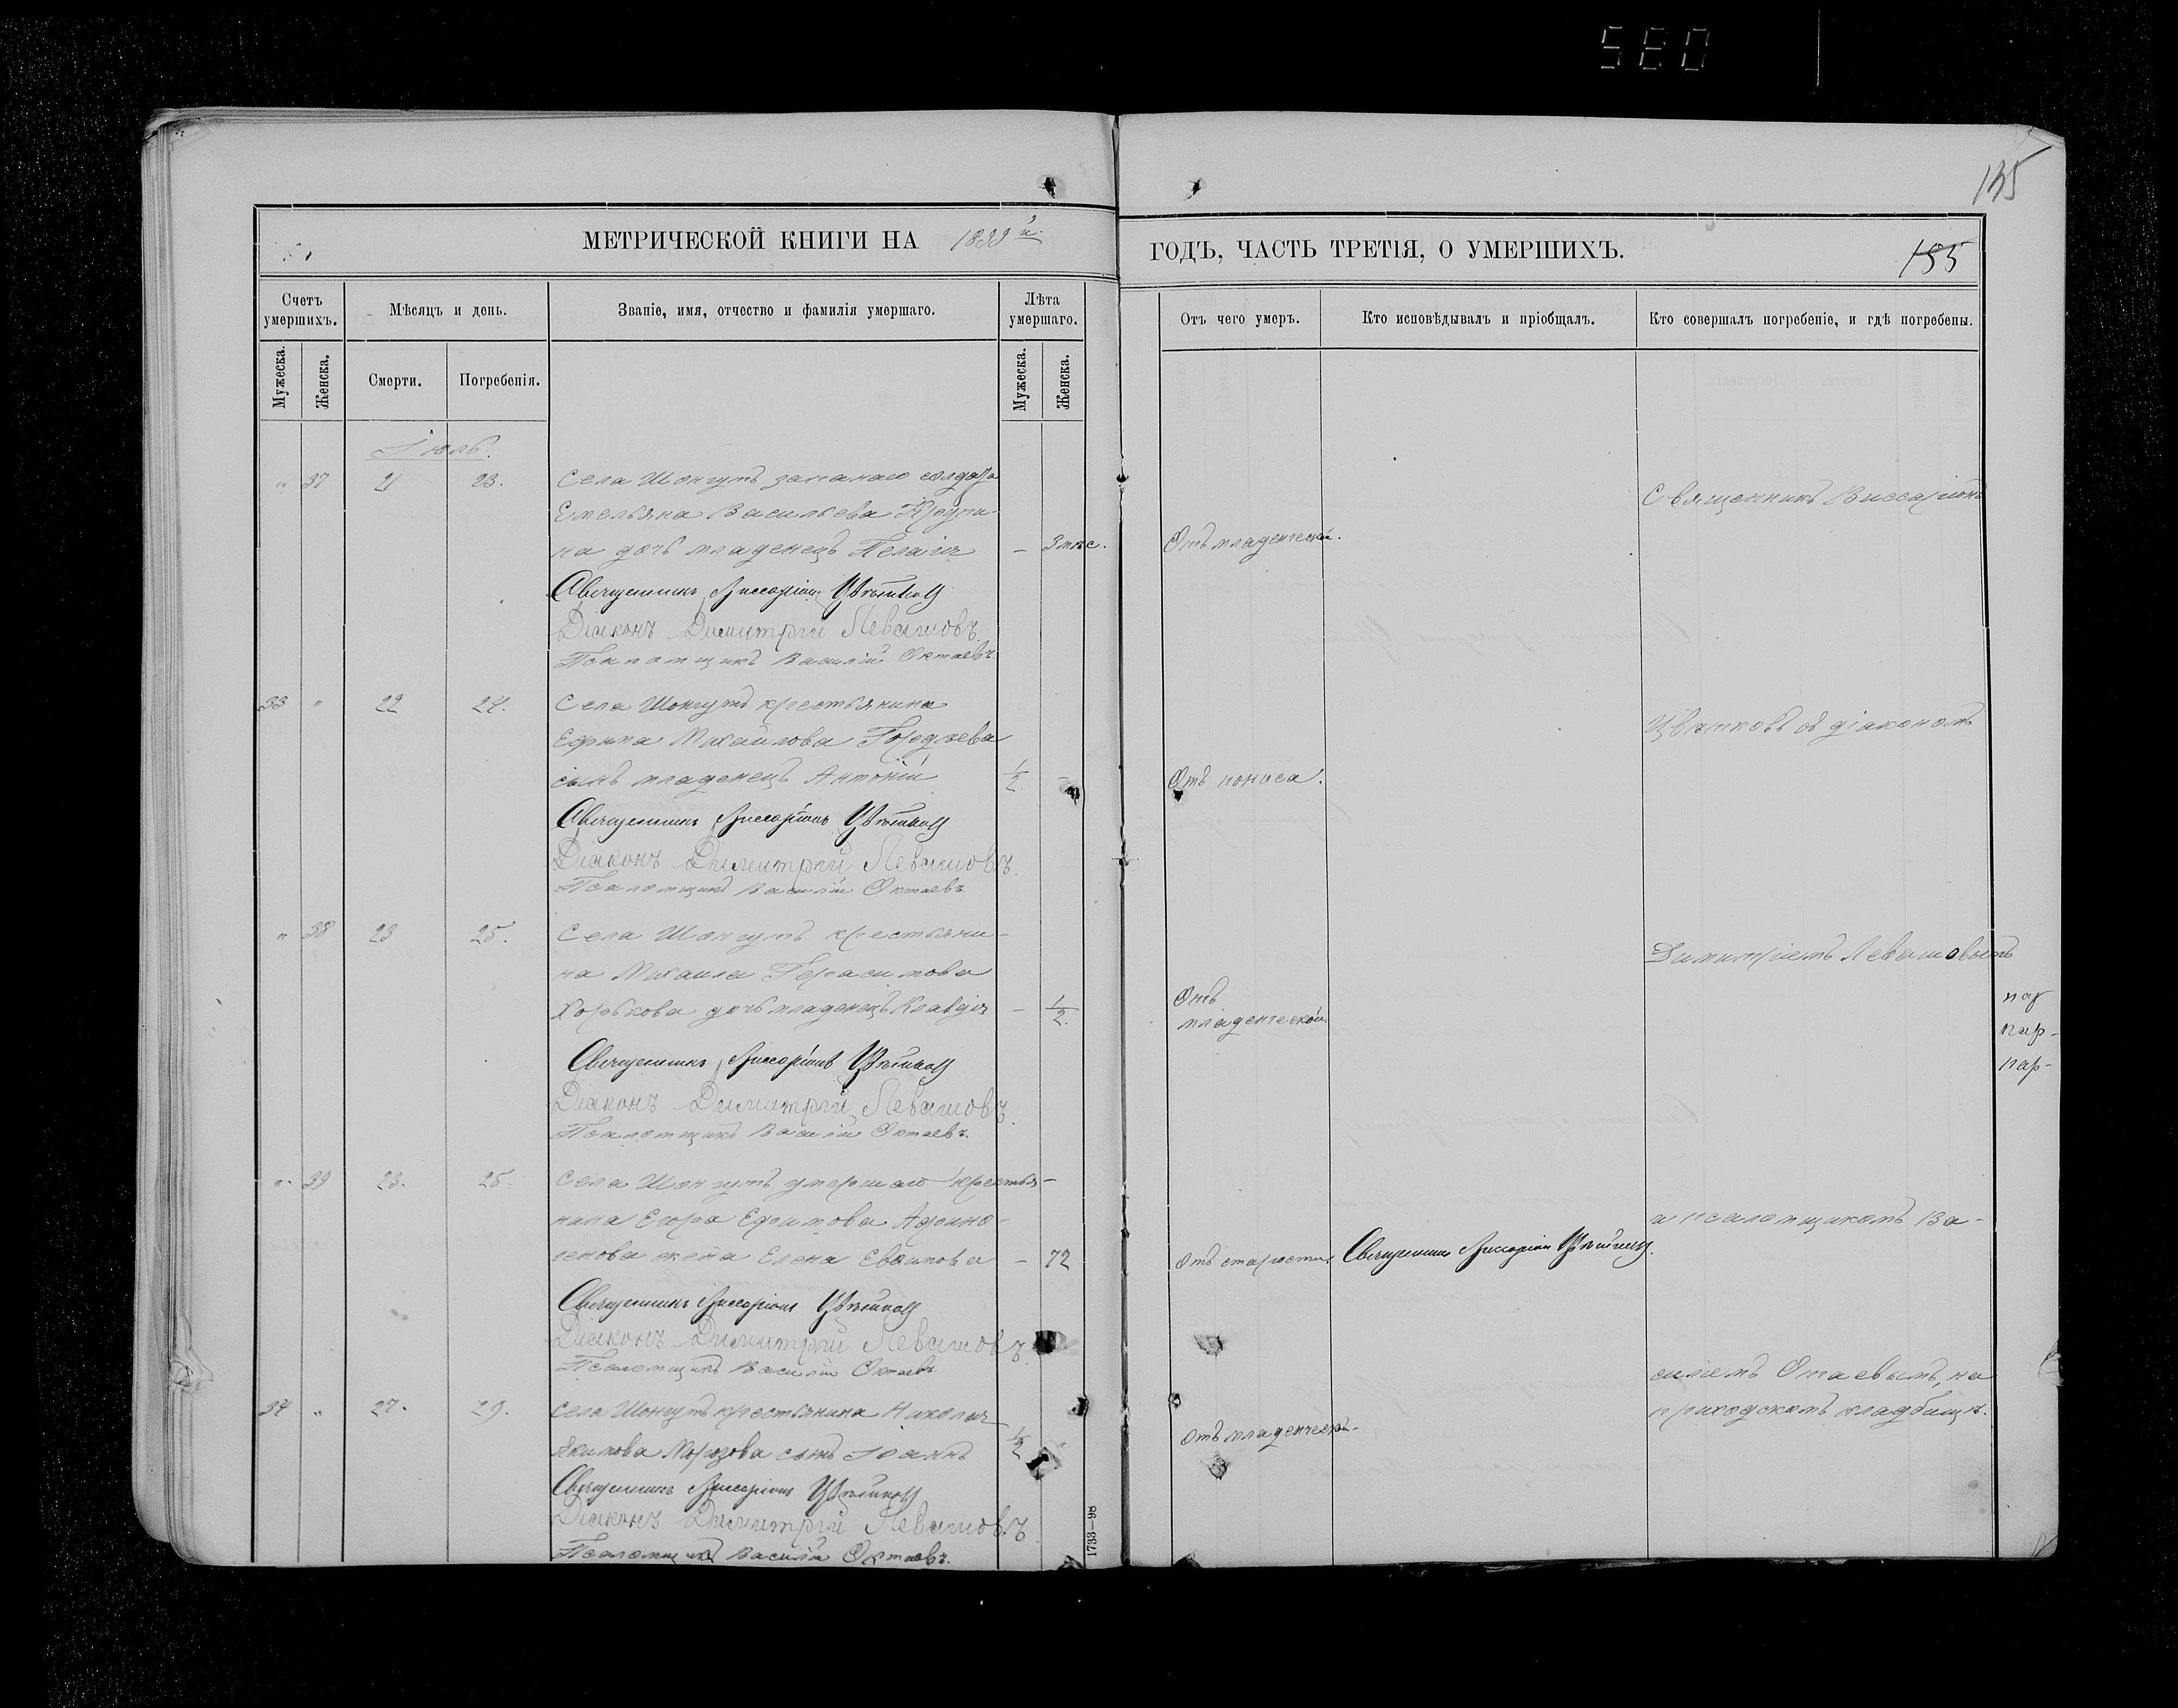 580
135
МЕТРИЧЕСКОЙ КНИГИ НА 1899 й.
ГОДЪ, ЧАСТЬ ТРЕТІЯ, О УМЕРШИХЪ.
155
Счетъ умершихъ.
Мѣсяцъ и день.
Званіе, имя, отчество и фамилія умершаго.
Лѣта умершаго.
Отъ чего умеръ.
Кто исповѣдывалъ и пріобщалъ.
Кто совершалъ погребеніе, и гдѣ погребены.
Мужеска.
Женска.
Смерти.
Погребенія.
Мужеска.
Женска.
Іюль.
" 37 21 23. Села Шонгутъ запаснаго солдата
Емельяна Васильева
на дочь младенецъ Пелагія – 3 мѣс. Отъ младенческой.
Священникъ Виссаріонъ Цвѣтковъ
Діаконъ Димитрій Левашовъ.
Псаломщикъ Василій Октаевъ
33 " 22 24. Села Шонгутъ крестьянина
Ефима Михайлова Гордѣева
сынъ младенецъ Антоній 1/2 – Отъ поноса.
Священникъ Виссаріонъ Цвѣтковъ
Діаконъ Димитрій Левашовъ.
Псаломщикъ Василій Октаевъ.
" 38 23 25. Села Шонгутъ крестьяни-
на Михаила Герасимова
Хорькова дочь младенецъ Клавдія – 1/2. Отъ младенческой
Священникъ Виссаріонъ Цвѣтковъ
Діаконъ Димитрій Левашовъ.
Псаломщикъ Василій Октаевъ.
" 39 23. 25. Села Шонгутъ умершаго крестья-
нина Егора Ефимова
жена Елена – 72 Отъ старости. Священникъ Виссаріонъ Цвѣтковъ.
Священникъ Виссаріонъ Цвѣтковъ
Діаконъ Димитрій Левашовъ.
Псаломщикъ Василій Октаевъ
34 " 27. 29. Села Шонгутъ крестьянина Николая
Якимова Морозова сынъ Іоаннъ 1/2 " Отъ младенческой.
Священникъ Виссаріонъ Цвѣтковъ
Діаконъ Димитрій Левашовъ
Псаломщикъ Василій Октаевъ.
1733—98
Священникъ Виссаріонъ
Цвѣтковъ съ діакономъ
Димитріемъ Левашовымъ
и псаломщикомъ Ва-
силіемъ Отаевымъ, на
приходскомъ кладбищѣ.
пар-
пар-